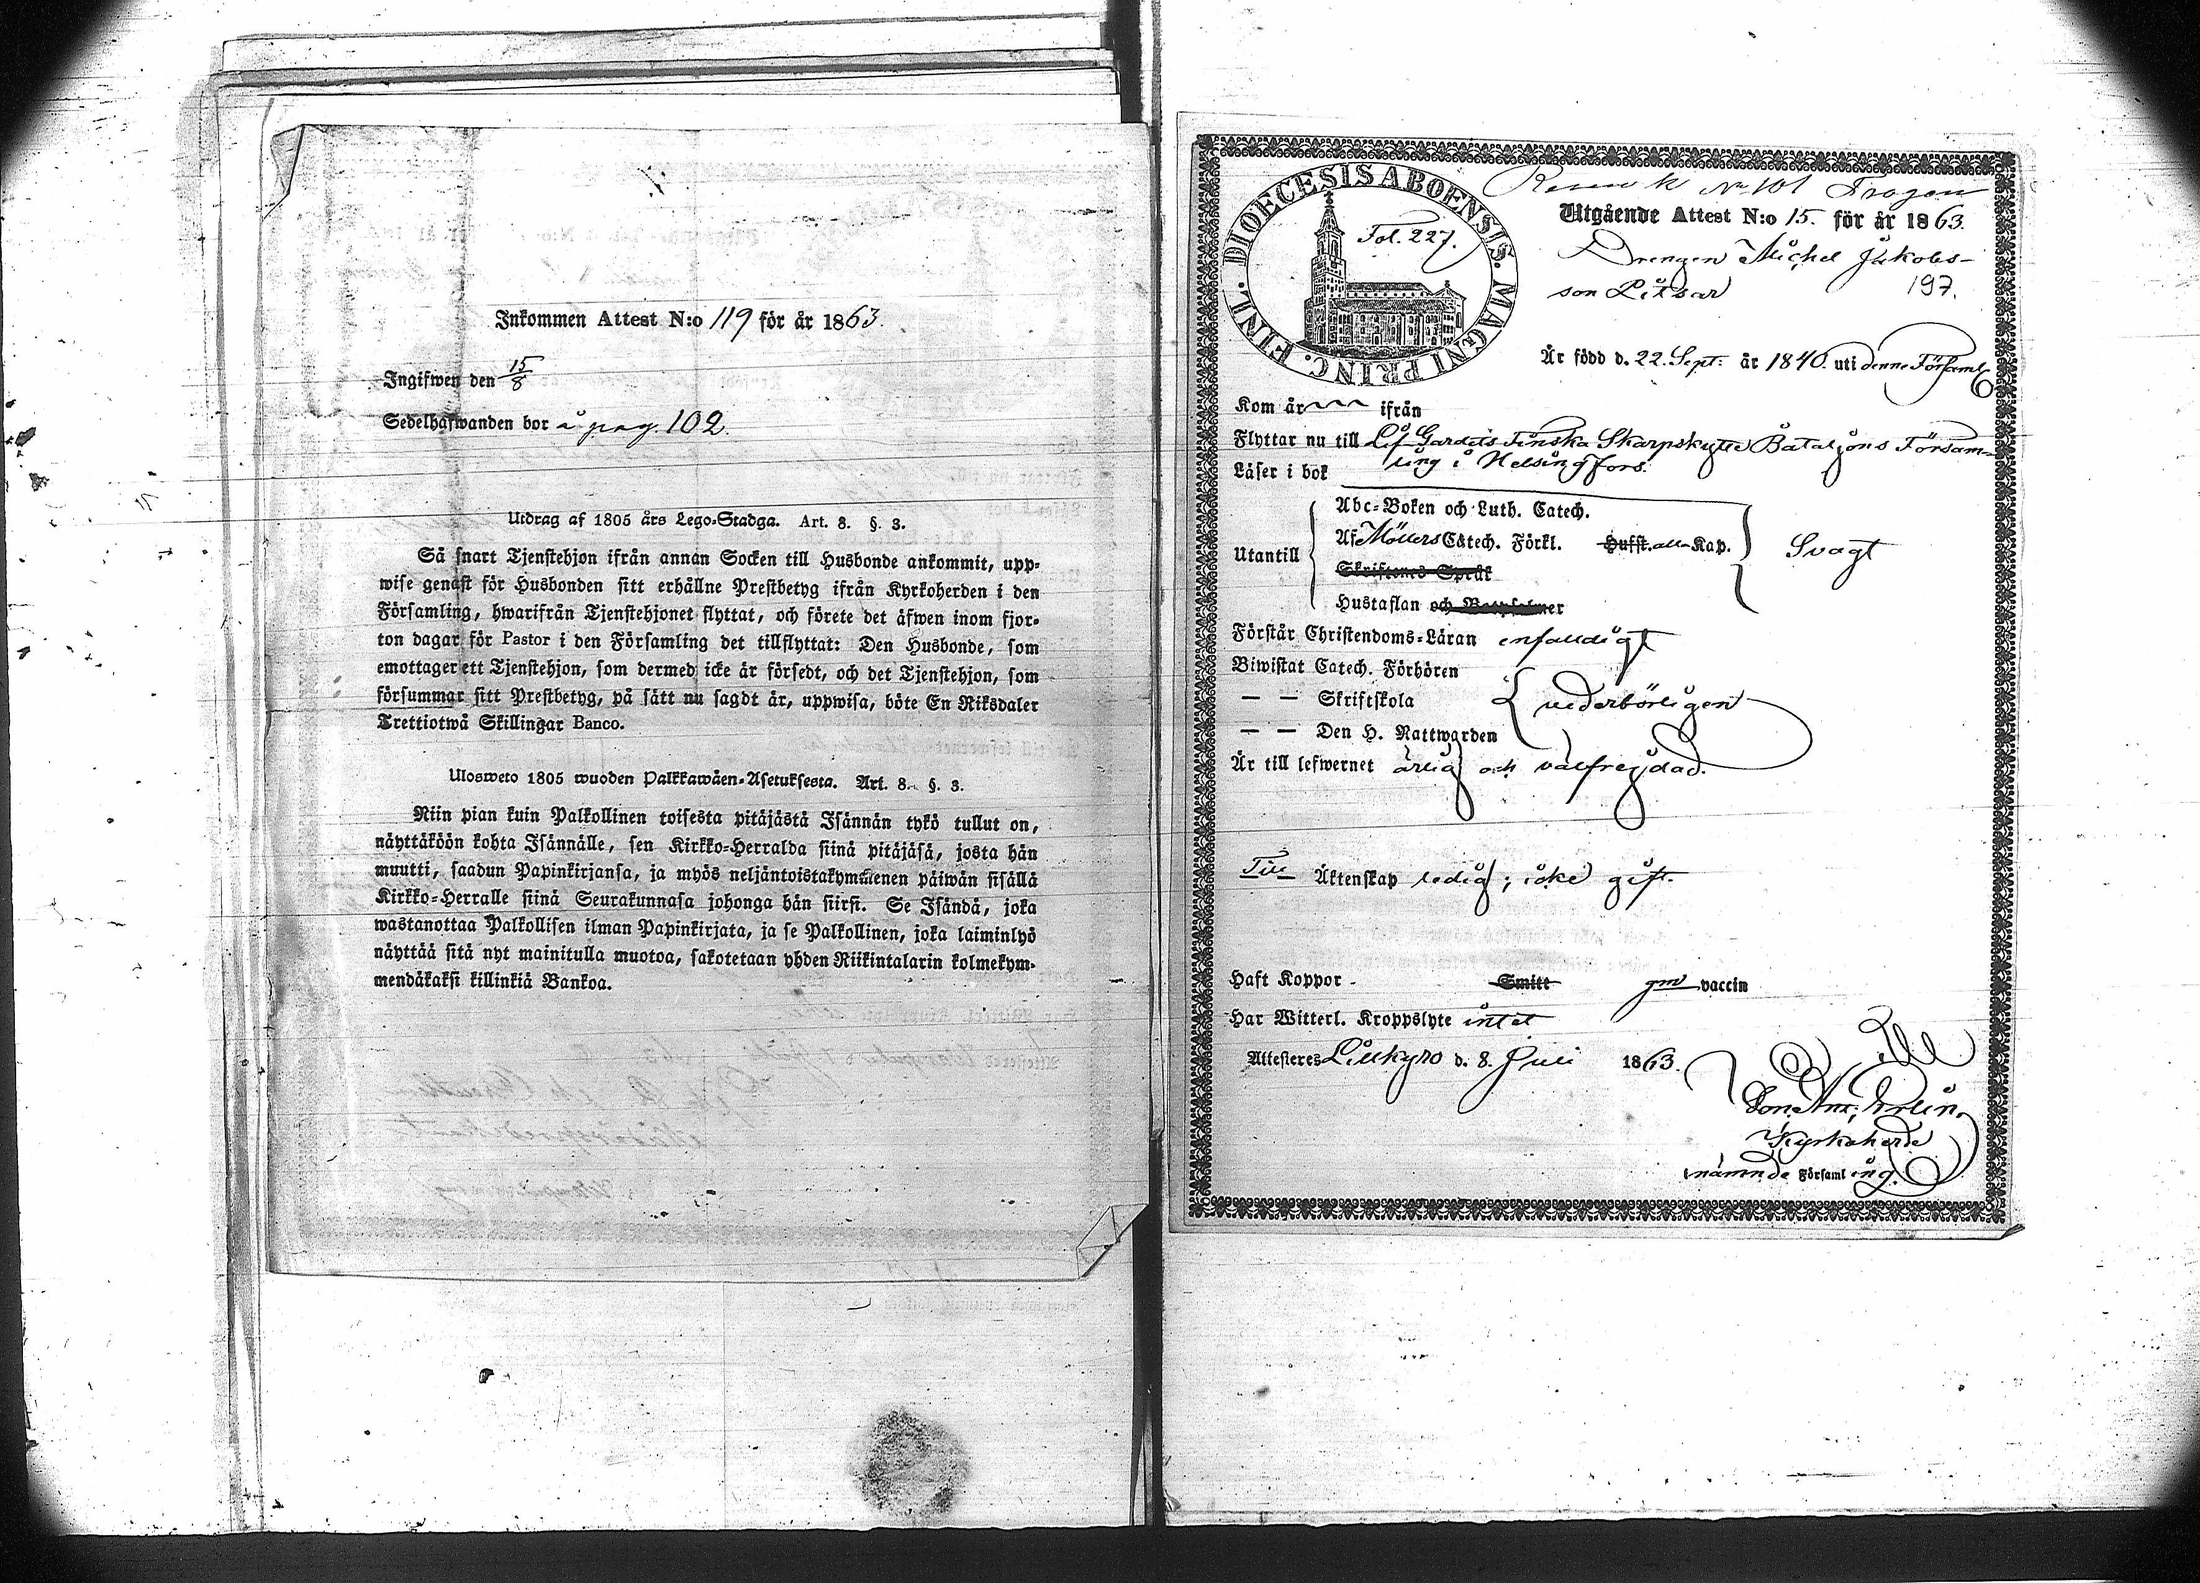 Inkommen Attest N:o 119 för år 1863.
Ingifwen den 15/8
Sedelhafwanden bor å pag. 102.
Utdrag af 1805 års Lego-Stadga. Art. 8. §. 3.
Så snart Tjenstehjon ifrån annan Socken till Husbonde ankommit, upp-
wise genast för Husbonden sitt erhållne Prestbetyg ifrån Kyrkoherden i den
Församling, hwarifrån Tjenstehjonet flyttat, och förete det äfwen inom fjor-
ton dagar för Pastor i den Församling det tillflyttat: Den Husbonde, som
emottager ett Tjenstehjon, som dermed icke är försedt, och det Tjenstehjon, som
försummar sitt Prestbetyg, på sätt nu sagdt är, uppwisa, böte En Riksdaler
Trettiotwå Skillingar Banco.
Ulosweto 1805 wuoden Palkkawäen-Asetuksesta. Art. 8. §. 3.
Niin pian kuin Palkollinen toisesta pitäjästä Isännän tykö tullut on,
näyttäköön kohta Isännälle, sen Kirkko-Herralda siinä pitäjäsä, josta hän
muutti, saadun Papinkirjansa, ja myös neljäntoistakymmenen päiwän sisällä
Kirkko-Herralle siinä Seurakunnasa johonga hän siirsi. Se Isändä, joka
wastanottaa Palkollisen ilman Papinkirjata, ja se Palkollinen, joka laiminlyö
näyttää sitä nyt mainitulla muotoa, sakotetaan yhden Riikintalarin kolmekym-
mendäkaksi killinkiä Bankoa.
DIOECESIS ABOENSIS. MAGNI PRINC. FINL.
Fol. 227.
No 101 Trogen
Utgående Attest N:o 15. för år 1863.
Drengen Michel Jakobs-
son Litsar 197.
Är född d. 22. Sept. år 1840. uti denne Församl
Kom år ifrån
Flyttar nu till Lif Gardets Finska Skarpskytte Bataljons Försam-
ling i Helsingfors.
Läser i bok
Utantill
Abc-Boken och Luth. Catech.
Af Möllers Catech. Förkl. Hufst. alla Kap.
Skriftenes Språk
Hustaflan och Botpsalmer
Svagt
Förstår Christendoms-Läran enfaldigt
Biwistat Catech. Förhören
— — Skriftskola
— — Den H. Nattwarden
vederbörligen
Är till lefwernet ärlig och välfrejdad.
Till Äktenskap ledig; icke gift.
Haft Koppor - Smitt gm vaccin
Har Witterl. Kroppslyte intet
Attesteras Lillkyro d. 8. Juli 1863.
Kyrkoherde
i nämnde Församling.